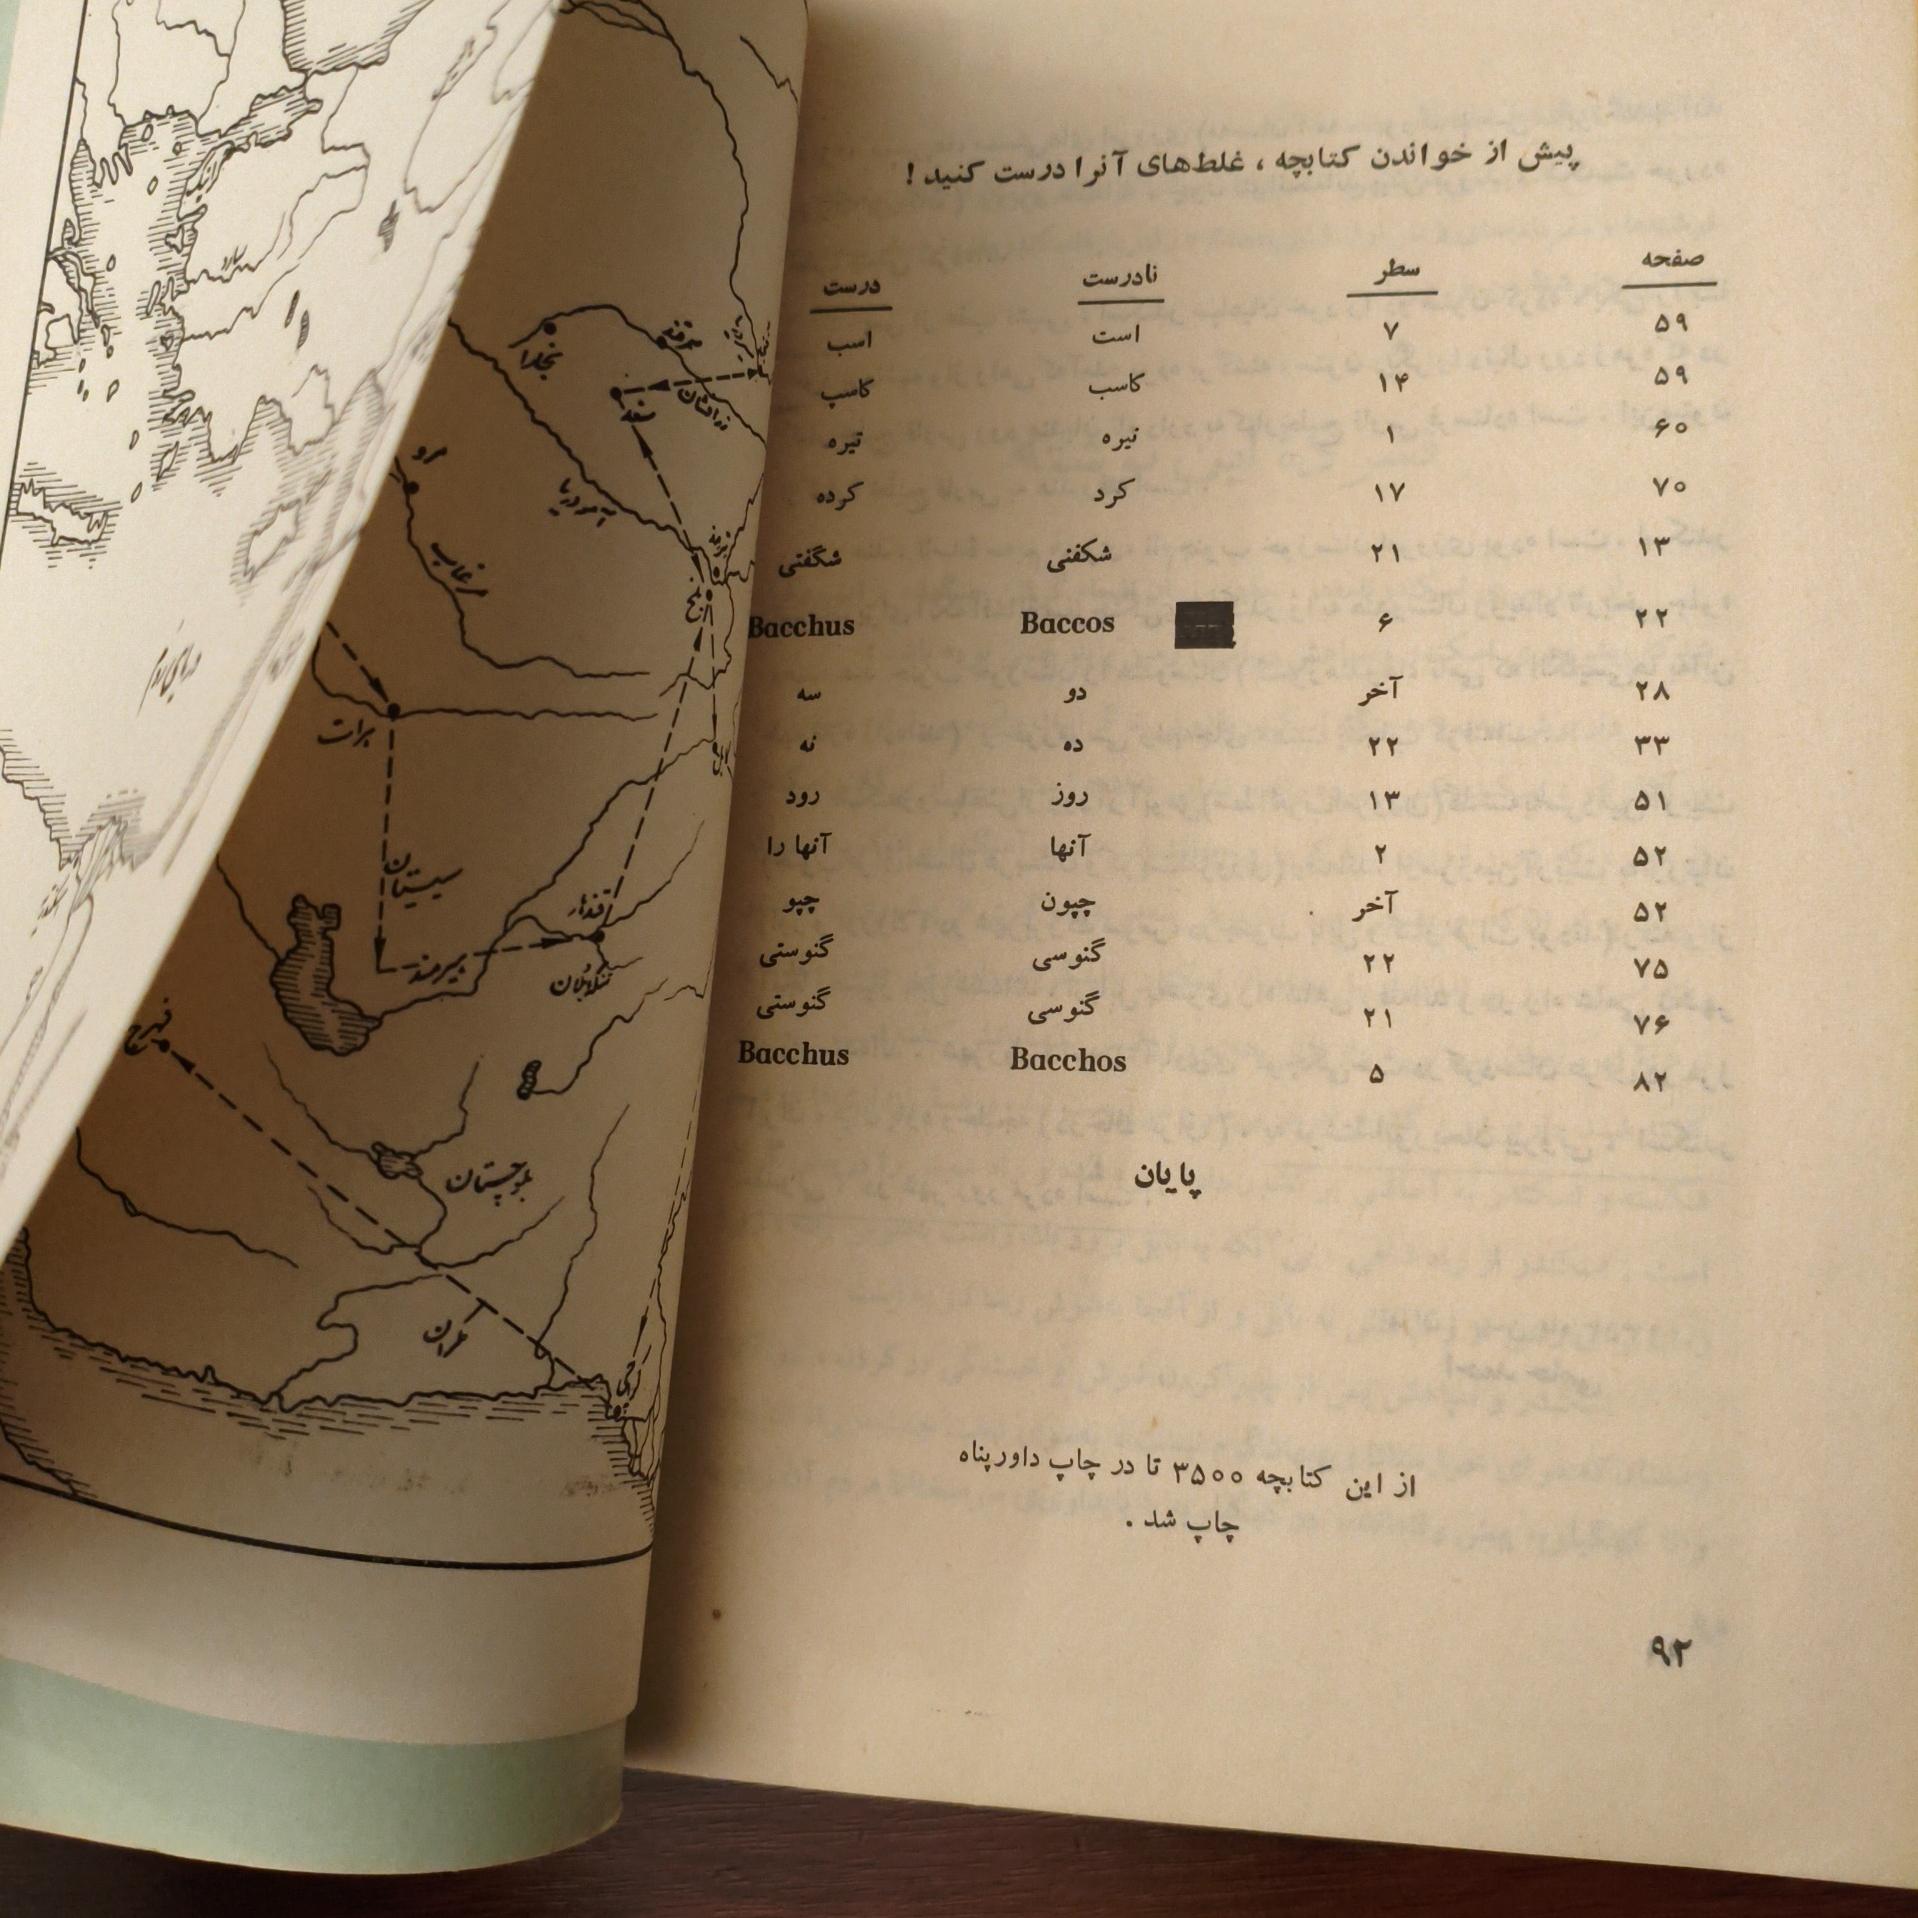 پیش از خواندن کتابچه ، غلط‌های آنرا درست کنید !
صفحه سطر نادرست درست
۵۹ ۷ است اسب
۵۹ ۱۴ کاسب کاسپ
۶۰ ۱ نیره تیره
۷۰ ۱۷ کرد کرده
۱۳ ۲۱ شکفنی شگفتی
۲۲ ۶ Baccos Bacchus
۲۸ آخر دو سه
۳۳ ۲۲ ده نه
۵۱ ۱۳ روز رود
۵۲ ۲ آنها آنها را
۵۲ آخر چپون چپو
۷۵ ۲۲ گنوسی گنوستی
۷۶ ۲۱ گنوسی گنوستی
۸۲ ۵ Bacchos Bacchus
پایان
از این کتابچه ۳۵۰۰ تا در چاپ داورپناه
چاپ شد .
۹۲
سارد
بخارا
سمرقند
سغد
زرافشان
مرو
آمودریا
مرغاب
ترمذ
بلخ
هرات
کابل
سیستان
قندهار
هیرمند
فهرج
بلوچستان
مکران
کراچی
دریای روم